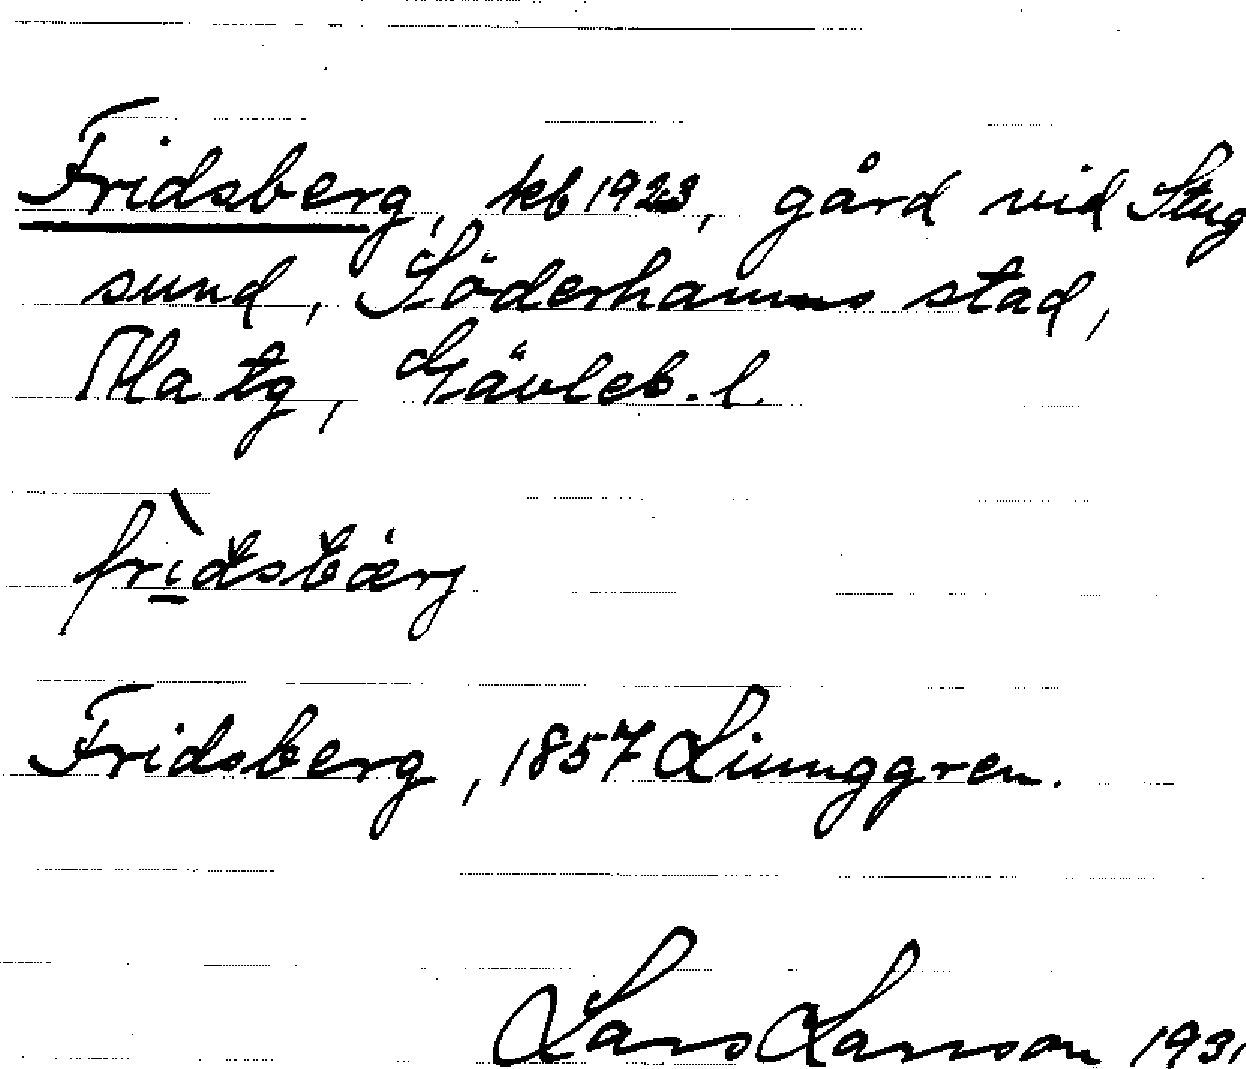 Fridsberg, kb 1923, gård vid Stug
sund, Söderhamns stad,
Ala tg, Gävleb. l.
fridsbärg
Fridsberg, 1857 Liunggren.
Lars Larsson 1931